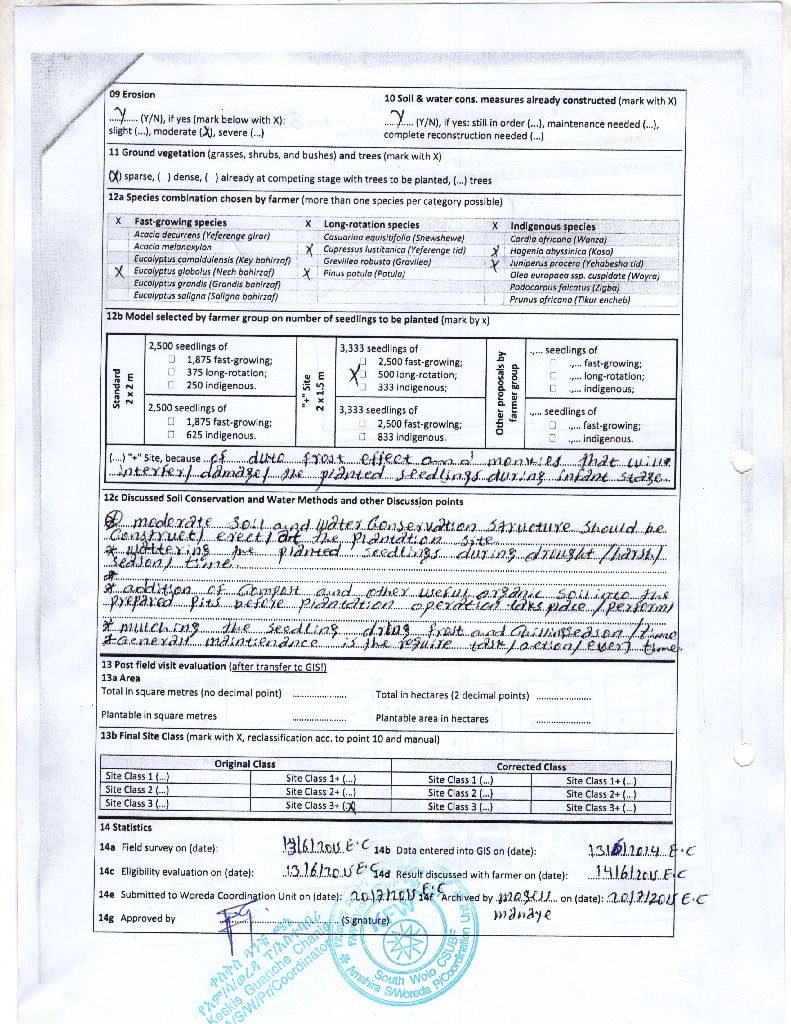 09 Erosion
Y (Y/N), if yes (mark below with X):
slight (...), moderate (X), severe (...)
10 Soil & water cons. measures already constructed (mark with X)
Y (Y/N), if yes: still in order (...), maintenance needed (...),
complete reconstruction needed (...)
11 Ground vegetation (grasses, shrubs, and bushes) and trees (mark with X)
(X) sparse, ( ) dense, ( ) already at competing stage with trees to be planted, (...) trees
12a Species combination chosen by farmer (more than one species per category possible)
X Fast-growing species
Acacia decurrens (Yeferenge girar)
Acacia melanoxylon
Eucalyptus camaldulensis (Key bahirzaf)
X Eucalyptus globolus (Nech bahirzaf)
Eucalyptus grandis (Grandis bahirzaf)
Eucalyptus saligna (Saligna bahirzaf)
X Long-rotation species
Casuarina equisitifolia (Shewshewe)
X Cupressus lusitanica (Yeferenge tid)
Grevillea robusta (Gravilea)
X Pinus patula (Patula)
X Indigenous species
Cordia africana (Wanza)
X Hagenia abyssinica (Koso)
X Juniperus procera (Yehabesha tid)
Olea europaea ssp. cuspidate (Woyra)
Podocarpus falcatus (Zigba)
Prunus africana (Tikur encheb)
12b Model selected by farmer group on number of seedlings to be planted (mark by x)
Standard
2 x 2 m
2,500 seedlings of
☐ 1,875 fast-growing;
☐ 375 long-rotation;
☐ 250 indigenous.
2,500 seedlings of
☐ 1,875 fast-growing;
☐ 625 indigenous.
"+" Site
2 x 1.5 m
3,333 seedlings of
☐ 2,500 fast-growing;
X 500 long-rotation;
☐ 333 indigenous;
3,333 seedlings of
☐ 2,500 fast-growing;
☐ 833 indigenous.
Other proposals by
farmer group
.,... seedlings of
☐ .,... fast-growing;
☐ .,... long-rotation;
☐ .,... indigenous;
.,... seedlings of
☐ .,... fast-growing;
☐ .,... indigenous.
(...) "+" Site, because of duto frost effect and monkies that will
interfer/ damage/ the planted seedlings during infant stage.
12c Discussed Soil Conservation and Water Methods and other Discussion points
moderate soil and water Conservation structure should be
Construct/ erect/ at the plantation site
* wattering the planted seedlings during drought /harsh/
season/ time.
* addition of Compost and other useful organic soil into the
prepared pits before plantation operation taks place /perform/
* mulching the seedling dring frost and chilling season /time
* General maintienance is the require task/action/ every time
13 Post field visit evaluation (after transfer to GIS!)
13a Area
Total in square metres (no decimal point) ...................
Total in hectares (2 decimal points) ...................
Plantable in square metres ...................
Plantable area in hectares ...................
13b Final Site Class (mark with X, reclassification acc. to point 10 and manual)
Original Class
Corrected Class
Site Class 1 (...) Site Class 1+ (...) Site Class 1 (...) Site Class 1+ (...)
Site Class 2 (...) Site Class 2+ (...) Site Class 2 (...) Site Class 2+ (...)
Site Class 3 (...) Site Class 3+ (X) Site Class 3 (...) Site Class 3+ (...)
14 Statistics
14a Field survey on (date): 13/6/2015 E.C
14b Data entered into GIS on (date): 13/6/2014 E.C
14c Eligibility evaluation on (date): 13/6/2015 E.C
14d Result discussed with farmer on (date): 14/6/2015 E.C
14e Submitted to Woreda Coordination Unit on (date): 20/7/2015 E.C
14f Archived by mogess manaye on (date): 20/7/2015 E.C
14g Approved by (Signature)
KFW
South Wolo CSUBF
Amahira S/Woreda P/Coordination Unit
Keskis Guanche Chanie
A/S/W/Pr/Coordinator